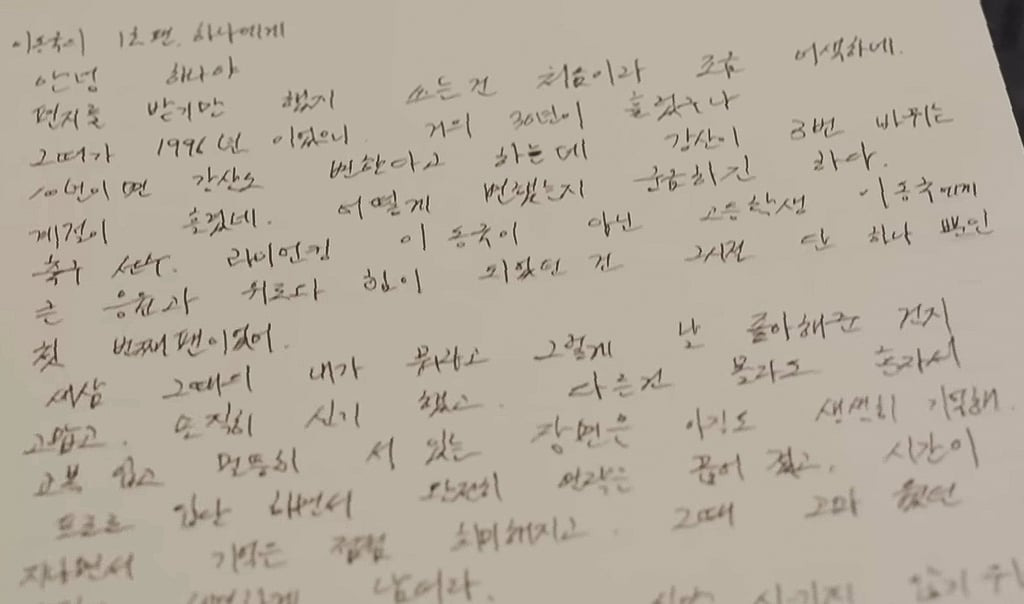 이동국의 1호팬. 하나에게
안녕 하나야
편지를 받기만 했지 쓰는건 처음이라 조금 어색하네.
그때가 1996년 이었으니 거의 30년이 흘렀구나
10년이면 강산도 변한다고 하는데 강산이 3번 바뀌는
계절이 흘렀네. 어떻게 변했는지 궁금하긴 하다.
축구 선수. 라이언킹 이동국이 아닌 고등학생 이동국에게
큰 응원과 위로와 힘이 되었던 건 그시절 단 하나 뿐인
첫 번째팬이었어.
새삼 그때의 내가 뭐라고 그렇게 날 좋아해준 건지
고맙고. 솔직히 신기 했고. 다른건 몰라도 혼자서
교복 입고 멀뚱히 서 있는 장면은 아직도 생생히 기억해.
프로로 입단 하면서 완전히 연락은 끊어 졌고. 시간이
지나면서 기억은 점점 희미해지고. 그때 고마 웠던
남더라.